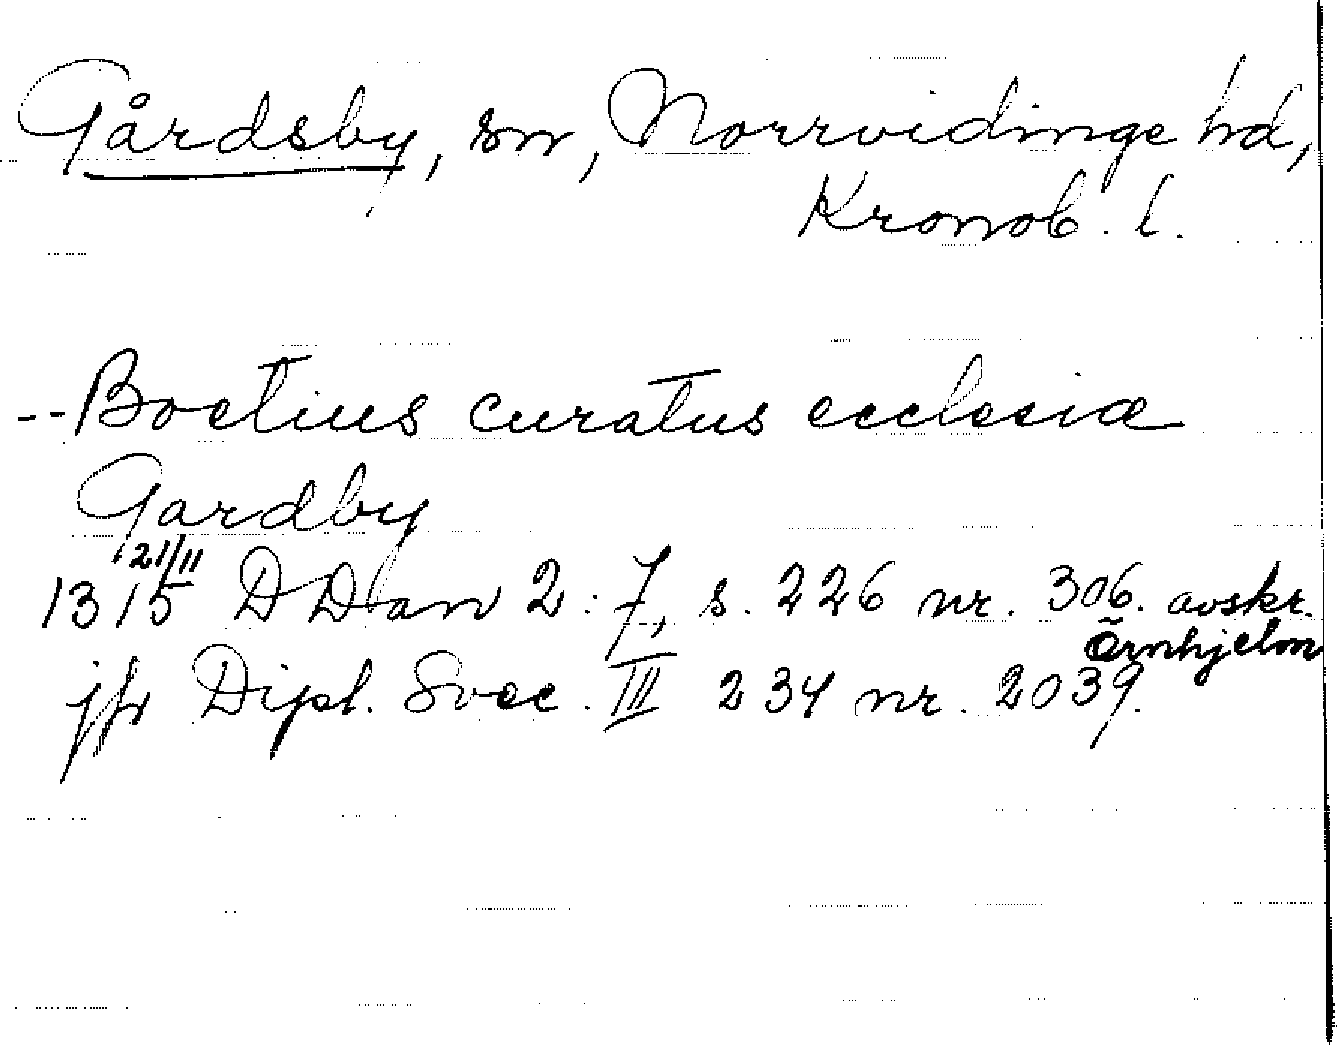 Gårdsby, sn, Norrvidinge hd,
Kronob. l.
-- Boetius curatus ecclesiæ
Gardby
21/11
1315 D Dan 2:7, s. 226 nr. 306. avskr.
Örnhjelm
jfr Dipl. Svec. III 234 nr. 2039.